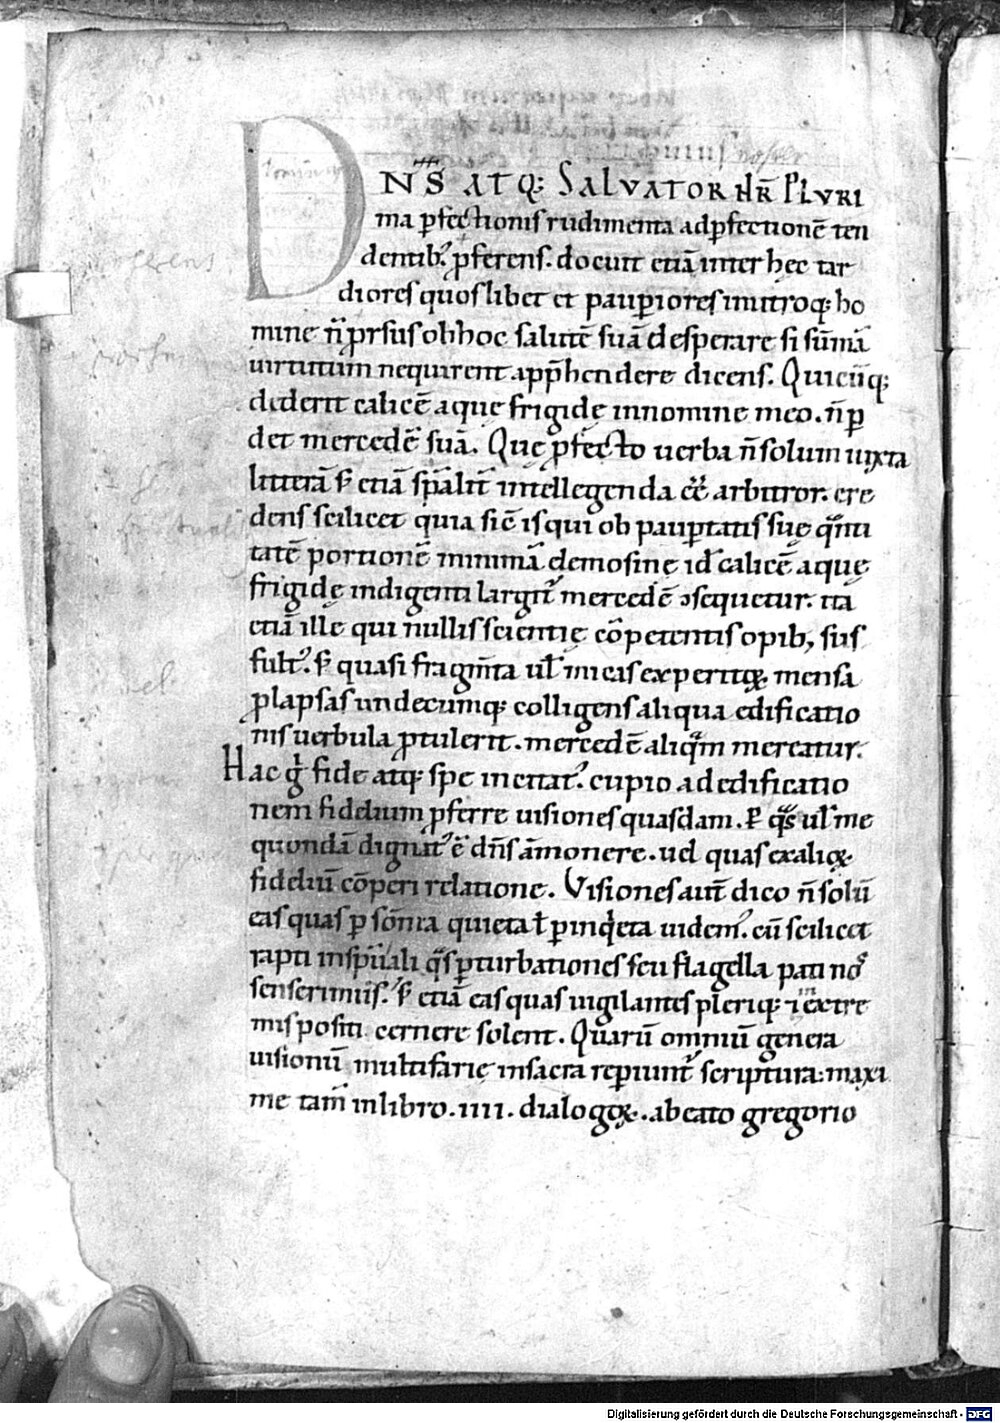 DN̄S ATQ: SALVATOR NR̄ PLVRI
ma ꝑfectionis rudimenta adꝑfectionē ten
dentib; ꝓferens. docuit etiā inter hęc tar
diores quoslibet et pauꝑiores inutroq; ho
mine n̄ ꝓrsus obhoc salutē suā desperare si sūmā
uirtutum nequirent apꝑhendere dicens. Quicūq;
dederit calicē aquę frigidę innomine meo. n̄ ꝑ
det mercedē suā. Quę ꝓfecto uerba n̄ solum iuxta
litterā s; etiā sp̄alit̄ intellegenda eē arbitror. cre
dens scilicet quia sic̄ is qui ob pauꝑtatis suę qͣnti
tatē portionē minimā elemosinę id ł calicē aquę
frigidę indigenti largit̄ mercedē ɔsequetur. ita
etiā ille qui nullis scientię cōpetentis opib; suf
fult᷒. s; quasi fragm̄ta ul̄ micas expertitꝝ mensa
ꝓlapsas undecumq; colligens aliqua edificatio
nis uerbula ꝓtulerit. mercedē aliqͣm mereatur.
Hac gͥ fide atq; spe incitat᷒. cupio ad edificatio
nem fidelium ꝓferre uisiones quasdam. ꝑ qͣs ul̄ me
quondā dignat᷒ ē dn̄s āmonere. uel quas ex aliqꝝ
fideliū cōperi relatione. Visiones aut̄ dico n̄ solū
eas quas ꝑ sōnia quieta ł ꝑ inqͥeta uidem᷒. cū scilicet
rapti insp̄uali qͣs ꝑturbationes seu flagella pati nos
senserimus. s; etiā eas quas uigilantes pleriq; ⁊ inextre
mis positi cernere solent. Quarū omniū genera
uisionū multifarię insacra reꝑiunt̄ scriptura: maxi
me tam̄ inlibro .IIII. dialogoꝝ. abeato gregorio
Digitalisierung gefördert durch die Deutsche Forschungsgemeinschaft - DFG